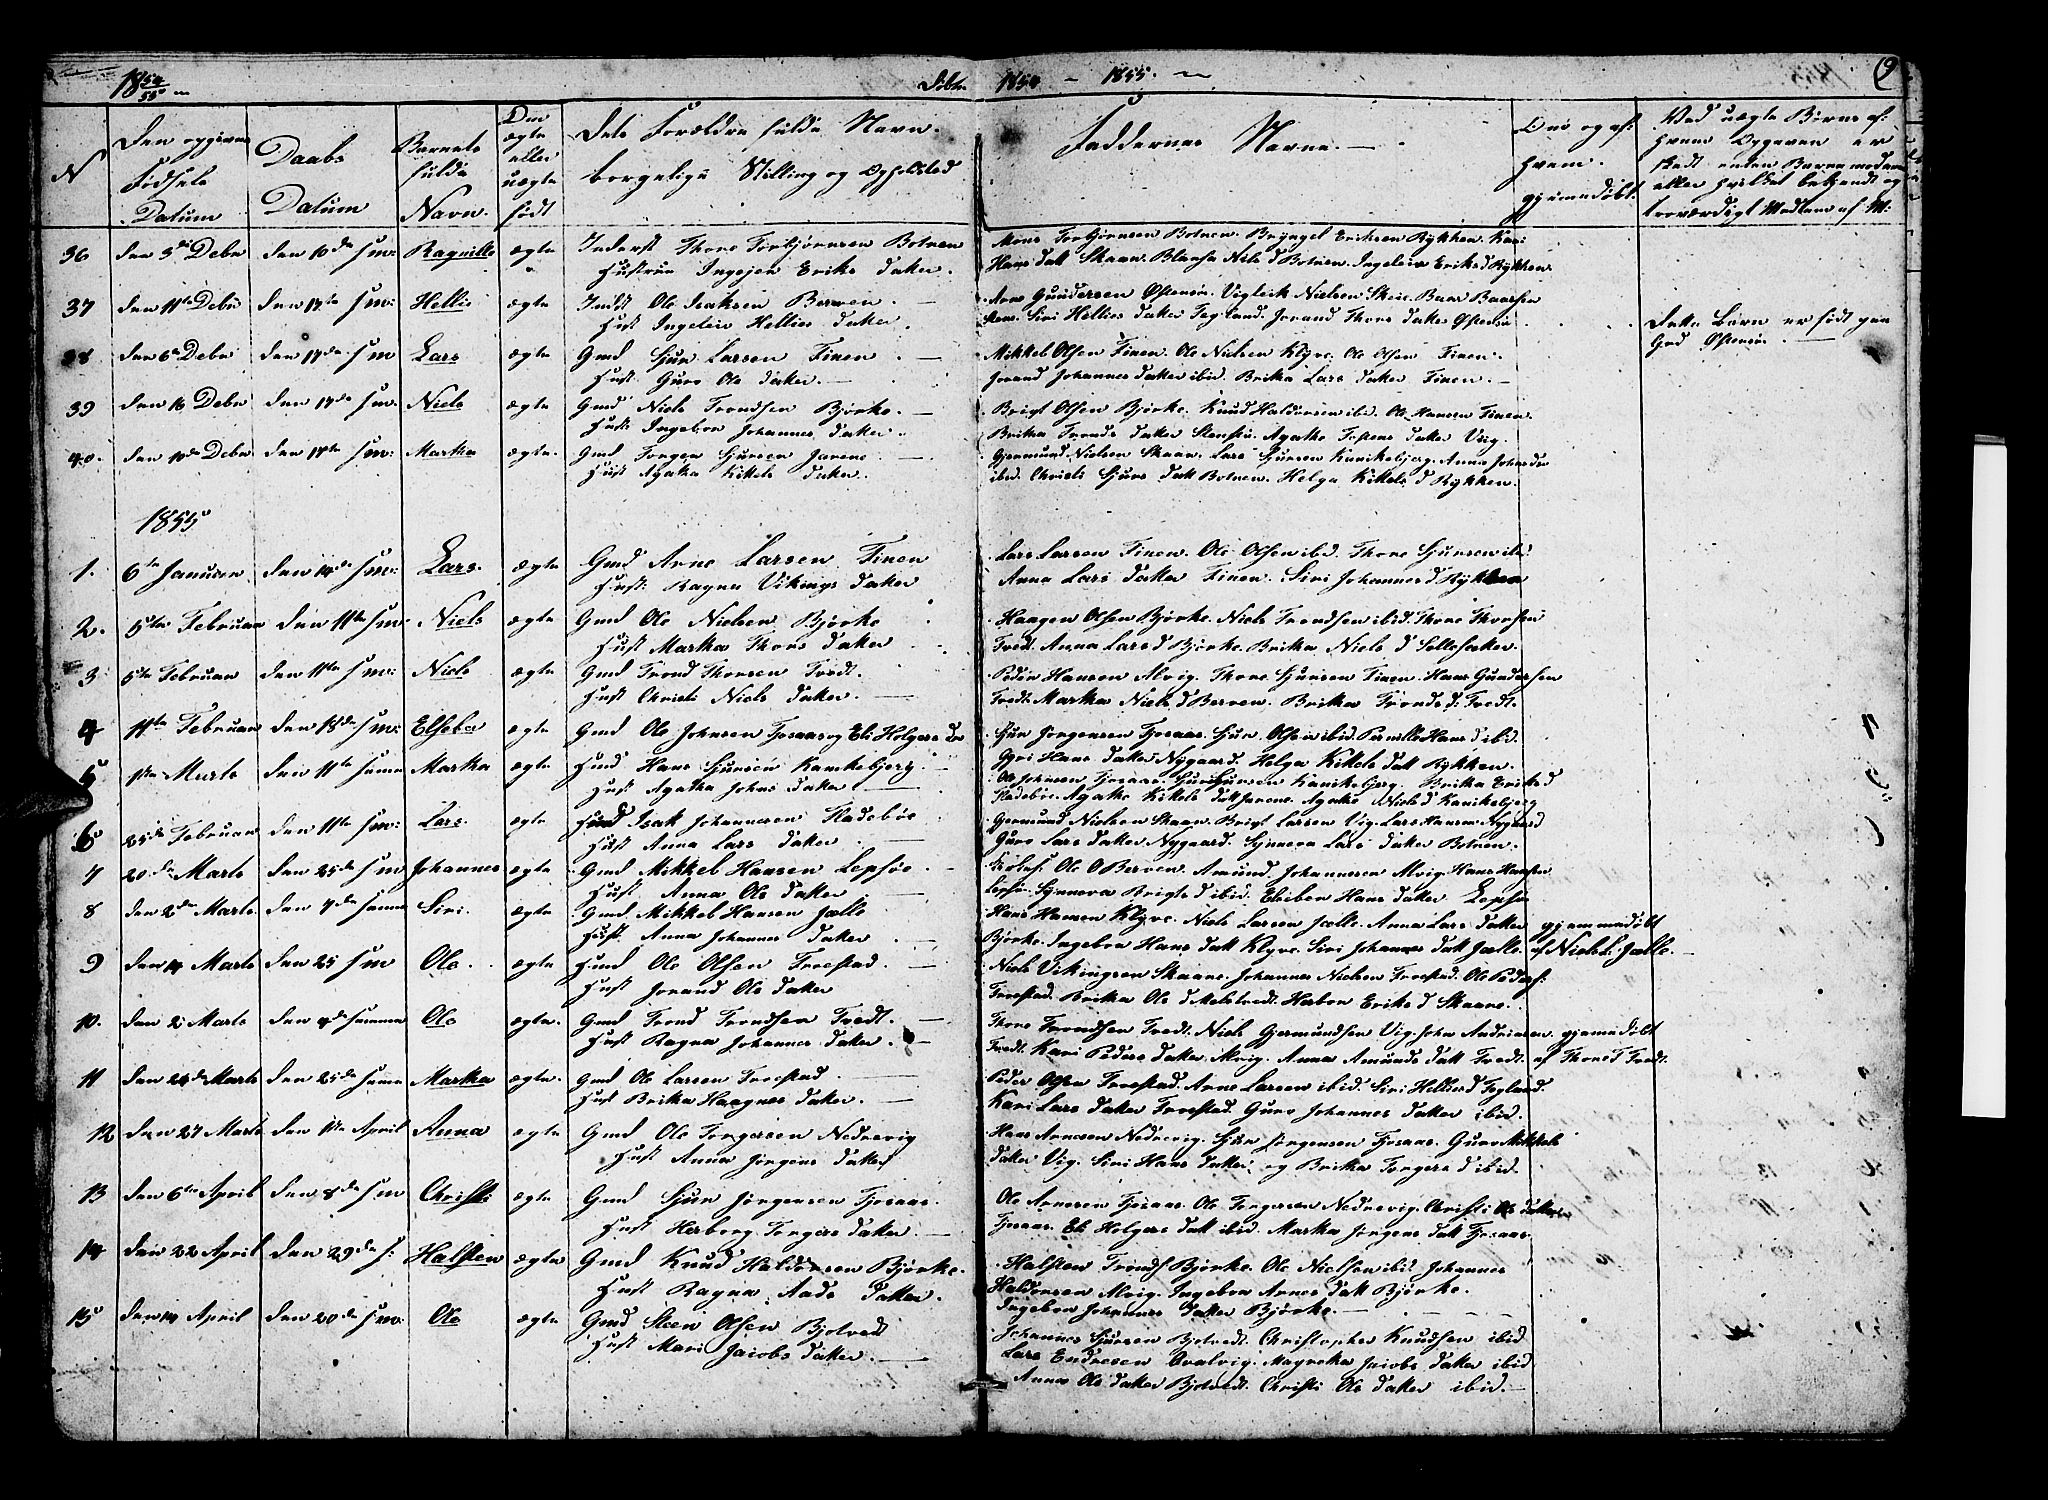 18 54/55
Døbte 1854 - 1855
9
N
Den opgivne Fødsels Datum
Daabs Datum
Barnets fulde Navn
Om ægte eller uægte født
Dets Forældre fulde Navn borgerlige Stilling og Opholdsted
Faddernes Navne
Om og af hvem hjemmedøbt
Ved uægte Børn af hvem Opgaven er skedt enten Barnemoderen eller hvilket bekjendt og troværdigt Medlem af M:
36 den 5te Debr den 10de s.m. Ragnille ægte Inderst Thore Torbjørnsen Botnen
Hustrue Ingejer Eriks Datter
Mons Torbjørnsen Botnen. Bryngel Eriksen Rykken. Kari
Hans Datt Skaan. Niels d Botnen. Ingeleiv Eriks d Rykken.
37 den 11te Debr den 17de s.m: Hellie ægte Indst Ole Isaksen Berven
Hust Ingeleiv Hellies Datter
Arne Gundersen Østensøe. Vigleik Nielsen Skeie. Baar Baarsen
Siri Hellies Datter Tegland. Jorand Thors Datter Østensøe
Dette Barn er født paa
Grd Østensøe.
38 den 6te Debr den 17de s.m Lars ægte Gmd Sjur Larsen Tinen
Hust Guro Ole Datter
Mikkel Olsen Tinen. Ole Nielsen Klyve. Ole Olsen Tinen.
Jorand Johannes Datter ibid. Britha Lars Datter Tinen.
39 den 16 Debr den 17de s.m. Niels ægte Gmd Niels Trondsen Bjørke.
Hust: Ingebor Johannes Datter
Brigt Olsen Bjørke. Knud Haldorsen ibid. Ole Hansen Tinen.
Britha Tronds Datter Steensøe. Agathe Datter Vig.
40. den 10de Debr den 17te s.m: Martha ægte. Gmd Torger Sjursen
Hust Agatha Kittels Datter
Gjermund Nielsen Skaan. Lars Sjursen Kankebjerg. Anna
ibid. Christi Sjurs Datt Botnen. Helga Kittels d Rykken.
1855
1. 6te Januar den 14de s.m: Lars. ægte Gmd Arne Larsen Tinen
Hust: Ragna Vikings Datter
Lars Larsen Tinen. Ole Olsen ibid. Thore Sjursen ibd
Anna Lars Datter Tinen. Siri Johannes d Rykken
2. 5te Februar den 11te s.m Niels ægte Gmd Ole Nielsen Bjørke
Hust Martha Thors Datter
Haagen Olsen Bjørke. Niels Trondsen ibid. Thore Thorsen
Tvedt. Anna Lars d Bjørke. Britha Niels d
3 5te Februar den 11te s.m: Niels ægte Gmd Trond Thorsen Tvedt.
Hust Christi Niels Datter
Peder Hansen Alvig. Thore Sjursen Tinen. Hans Gundersen
Tvedt. Martha Niels d Berven. Britha Tronds d: Tvedt.
4 11te Februar den 18de s.m: Elsebe ægte Gmd Ole Johnsen Fosaas og Eli Holgers Dr
Sjur Jørgensen Fosaas. Sjur Olsen ibid. Pernille Hans d ibid.
Gyri Hans Datter Nygaard. Helga Kittels Datt Rykken.
5 1ste Marts den 11te samme Martha ægte Huusmd Hans Sjursen Kankebjerg
Hust Agatha Johns Datter
Ole Johnsen Fosaas. Sjur Sjursen Kankebjerg. Britha Eriks d
Fladebøe. Agathe Kittels Datt Agathe Niels d Kankebjerg
6 25de Februar den 11te s.m: Lars. ægte Isak Johannesen Fladebøe
Hust Anna Lars Datter
Gjermund Nielsen Skaan. Brigt Larsen Vig. Lars Hansen Nygaard
Guro Lars Datter Nygaard. Synneva Lars Datter Botnen.
7 20de Marts den 25de s.m Johannes ægte Gmd Mikkel Hansen Lepsøe
Hust Anna Ole Datter
Ole O Berven. Amund Johannesen Alvig. Hans Hansen
Lepsøe. Synneva Brigts d ibid. Eliben Hans Datter Lepsøe
8 den 2de Marts. den 4de samme Siri. ægte Gmd. Mikkel Hansen Jælle
Hust. Anna Johannes Datter
Hans Hansen Klyve. Niels Larsen Jælle. Anna Lars Datter
Bjørke. Ingebor Hans Datt Klyve. Siri Johannes Datt Jælle.
hjemmedøbt
af Niels L. Jælle.
9 den 14 Marts den 25 s.m Ole. ægte Huusmd Ole Olsen Troestad
Hust Jorand Ole Datter
Niels Vikingsen Skaare. Johannes Nielsen Troestad. Ole Peders:
Troestad. Britha Ole d Herbor Eriks d Skaare.
10. den 2 Marts den 4de samme Ole ægte. Gmd Trond Trondsen Tvedt.
Hust Ragna Johannes Datter.
Thore Trondsen Tvedt. Niels Gjermundsen Vig. John Andersen
Tvedt. Kari Peders Datter Alvig. Anna Amunds Datt Tvedt.
hjemmedøbt
af Thore T Tvedt.
11 den 24de Marts den 25de samme Martha ægte. Gmd Ole Larsen Troestad
Hust Britha Haagnes Datter.
Peder Olsen Troestad. Arne Larsen ibid. Siri Hellies d Tegland.
Kari Lars Datter Troestad. Guro Johannes Datter ibid.
12 den 27 Marts den 1ste April Anna ægte Gmd Ole Torgersen Nedrevig
Hust Anna Jørgens Datter
Hans Arnesen Nedrevig. Sjur Jørgensen Fosaas. Guro Mikkels
Datter Vig. Siri Hans Datter og Britha Torgers d ibid.
13 den 6te April den 8de s.m Christi ægte Gmd Sjur Jørgensen Fosaas
Hust Herborg Torgers Datter.
Ole Arnesen Fosaas. Ole Torgersen Nedrevig. Christi Ole Datter
Fosaas. Eli Holgers Datt ibid. Martha Jørgens Datt Fosaas
14 den 22 April den 29de s: Halsten ægte Gmd Knud Haldorsen Bjørke.
Hust Ragna Aads Datter.
Halsten Tronds Bjørke. Ole Nielsen ibid. Johannes
Haldorsen Alvig. Ingebor Arnes Datt Bjørke.
Ingebor Johannes Datter Bjørke.
15 den 14 April den 20de s.m: Ole ægte Gmd Steen Olsen Bjotvedt
Hust Mari Jacobs Datter.
Johannes Sjursen Bjotvedt. Christopher Knudsen ibid
Lars Endresen Axalvig. Magretha Jacobs Datter ibid
Anna Ole Datter Bjotvedt. Christi Ole Datter ibid.